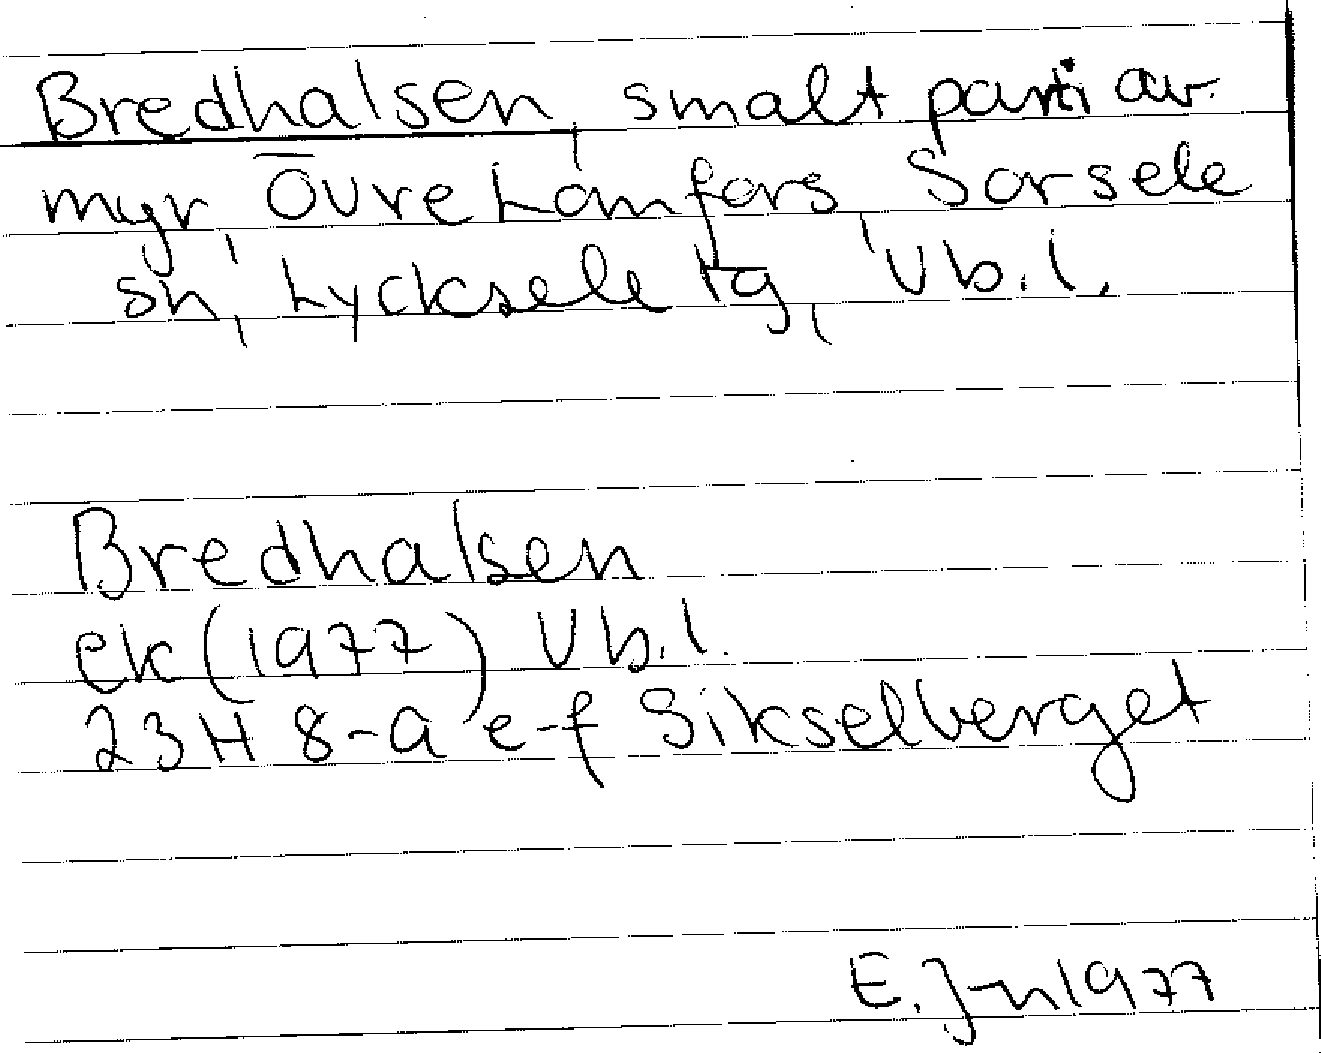 Bredhalsen, smalt parti av
myr, Övre Lomfors, Sorsele
sn, Lycksele tg, Vb.l.
Bredhalsen
ek (1977) Vb.l.
23H 8-a e-f Sikselberget
E. J-n 1977